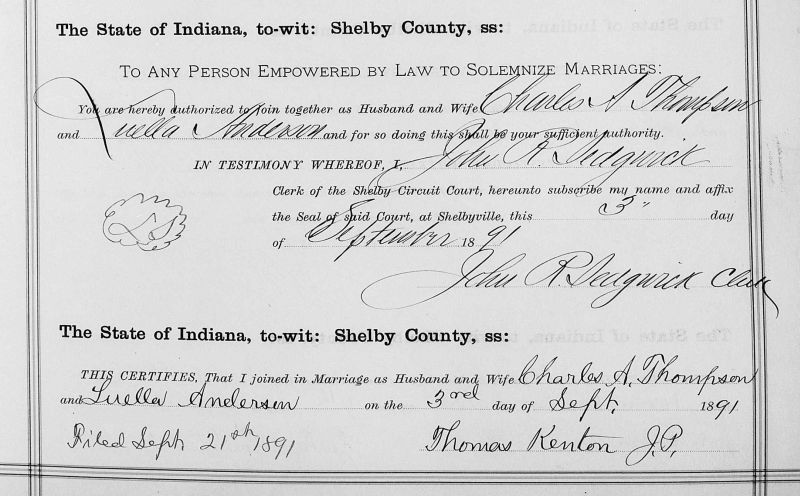 The State of Indiana, to-wit: Shelby County, ss:
TO ANY PERSON EMPOWERED BY LAW TO SOLEMNIZE MARRIAGES:
You are hereby authorized to join together as Husband and Wife Charles A Thompson
and Luella Anderson and for so doing this shall be your sufficient authority.
IN TESTIMONY WHEREOF, I, John R. Sedgwick
Clerk of the Shelby Circuit Court, hereunto subscribe my name and affix
the Seal of said Court, at Shelbyville, this 3" day
of September 1891
LS
John R. Sedgwick Clerk
The State of Indiana, to-wit: Shelby County, ss:
THIS CERTIFIES, That I joined in Marriage as Husband and Wife Charles A. Thompson
and Luella Anderson on the 3rd day of Sept. 1891
Filed Sept 21st 1891 Thomas Kenton J.P.